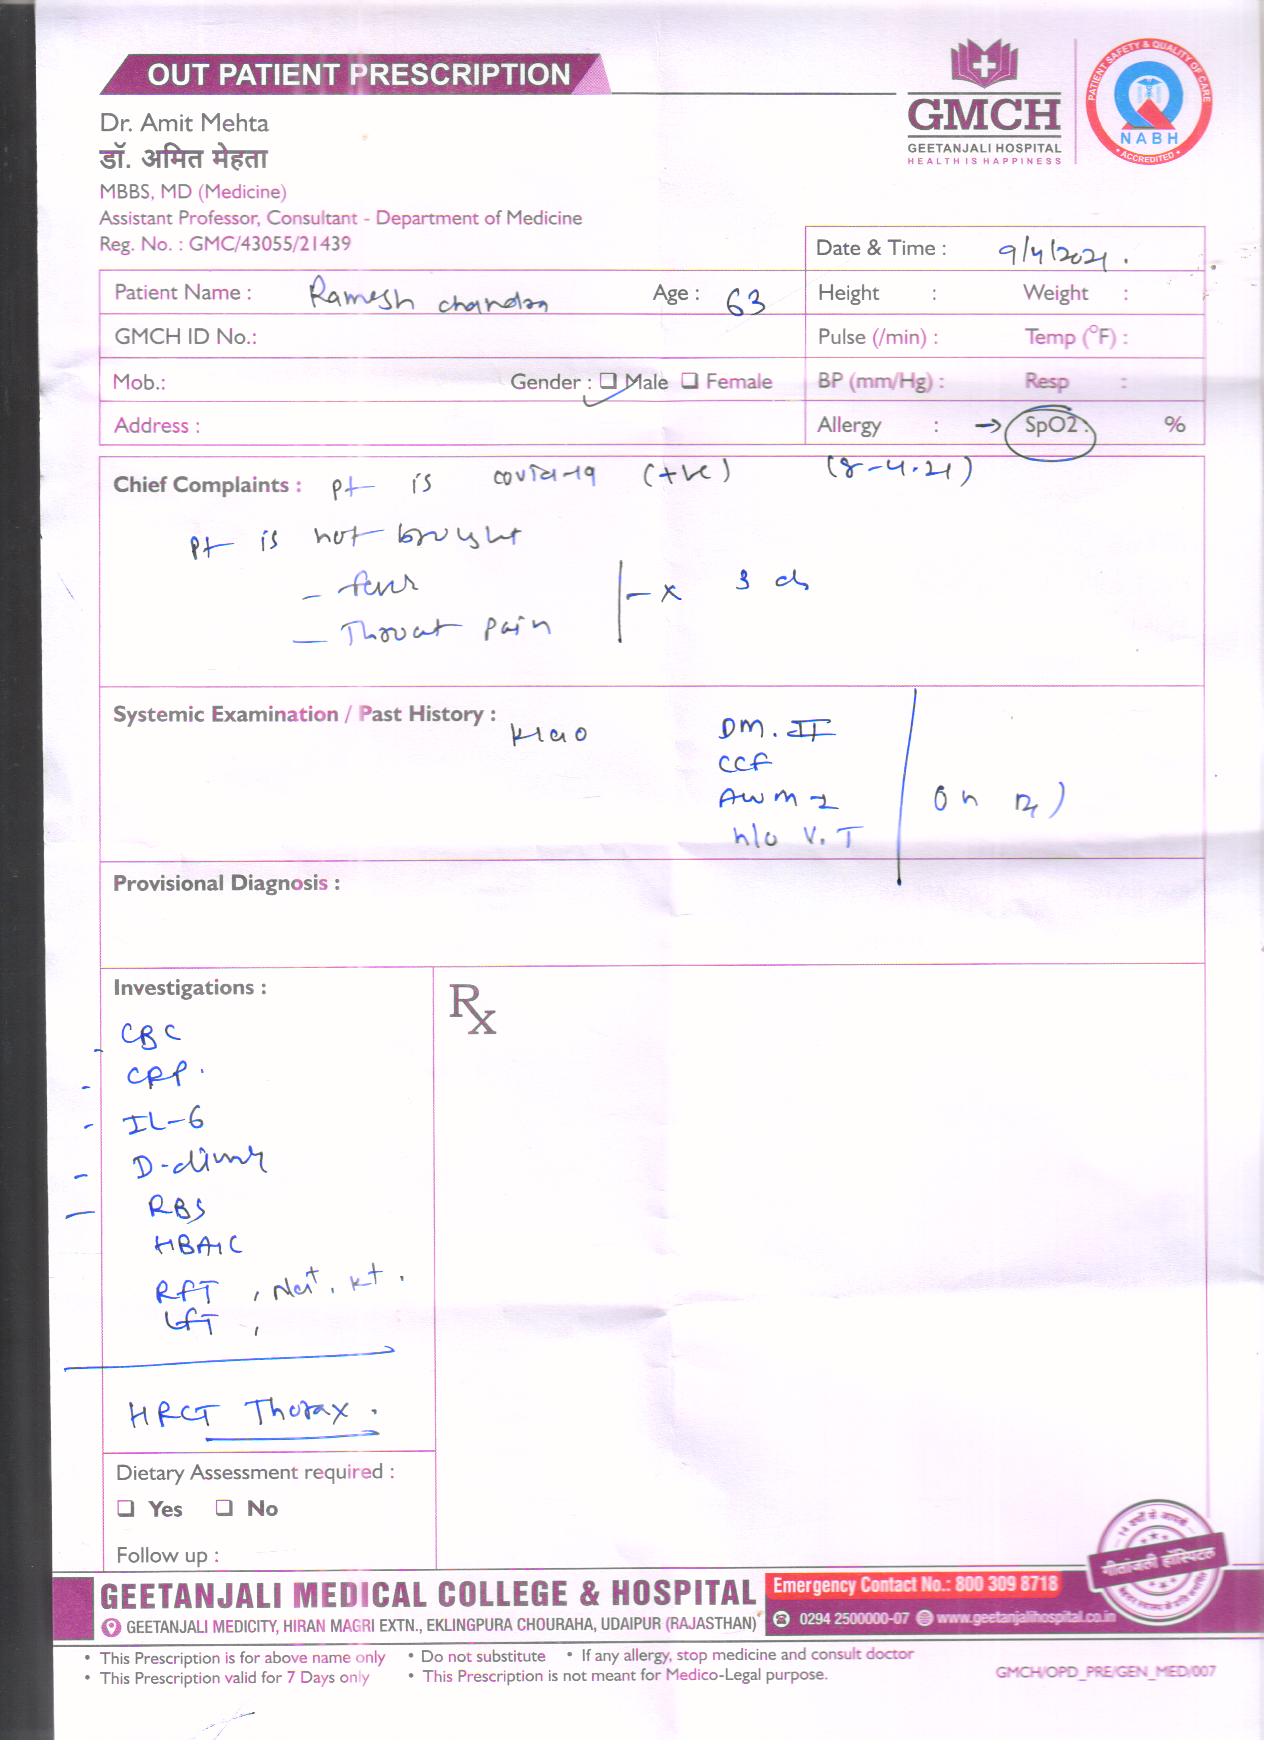 OUT PATIENT PRESCRIPTION
GMCH
GEETANJALI HOSPITAL
HEALTH IS HAPPINESS
PATIENT SAFETY & QUALITY OF CARE
NABH
ACCREDITED
Dr. Amit Mehta
डॉ. अमित मेहता
MBBS, MD (Medicine)
Assistant Professor, Consultant - Department of Medicine
Reg. No. : GMC/43055/21439
Date & Time : 9/4/2021.
Patient Name : Ramesh chandra Age : 63 Height : Weight :
GMCH ID No.: Pulse (/min) : Temp (°F) :
Mob.: Gender : Male Female BP (mm/Hg) : Resp :
Address : Allergy : → SpO2 : %
Chief Complaints : pt is covid-19 (+ve) (8-4-21)
pt is not brought
- fever
- Throat pain - x 3 d
Systemic Examination / Past History : K/c/o DM. II
CCF
AWMI On Rx)
h/o V.T
Provisional Diagnosis :
Investigations : Rx
- CBC
- CRP.
- IL-6
- D-dimer
- RBS
HBA1C
RFT, Na+, K+.
LFT,
HRCT Thorax.
Dietary Assessment required :
Yes No
Follow up :
गीतांजली हॉस्पिटल
GEETANJALI MEDICAL COLLEGE & HOSPITAL
Emergency Contact No.: 800 309 8718
GEETANJALI MEDICITY, HIRAN MAGRI EXTN., EKLINGPURA CHOURAHA, UDAIPUR (RAJASTHAN)
0294 2500000-07 www.geetanjalihospital.co.in
• This Prescription is for above name only • Do not substitute • If any allergy, stop medicine and consult doctor
• This Prescription valid for 7 Days only • This Prescription is not meant for Medico-Legal purpose.
GMCH/OPD_PRE/GEN_MED/007